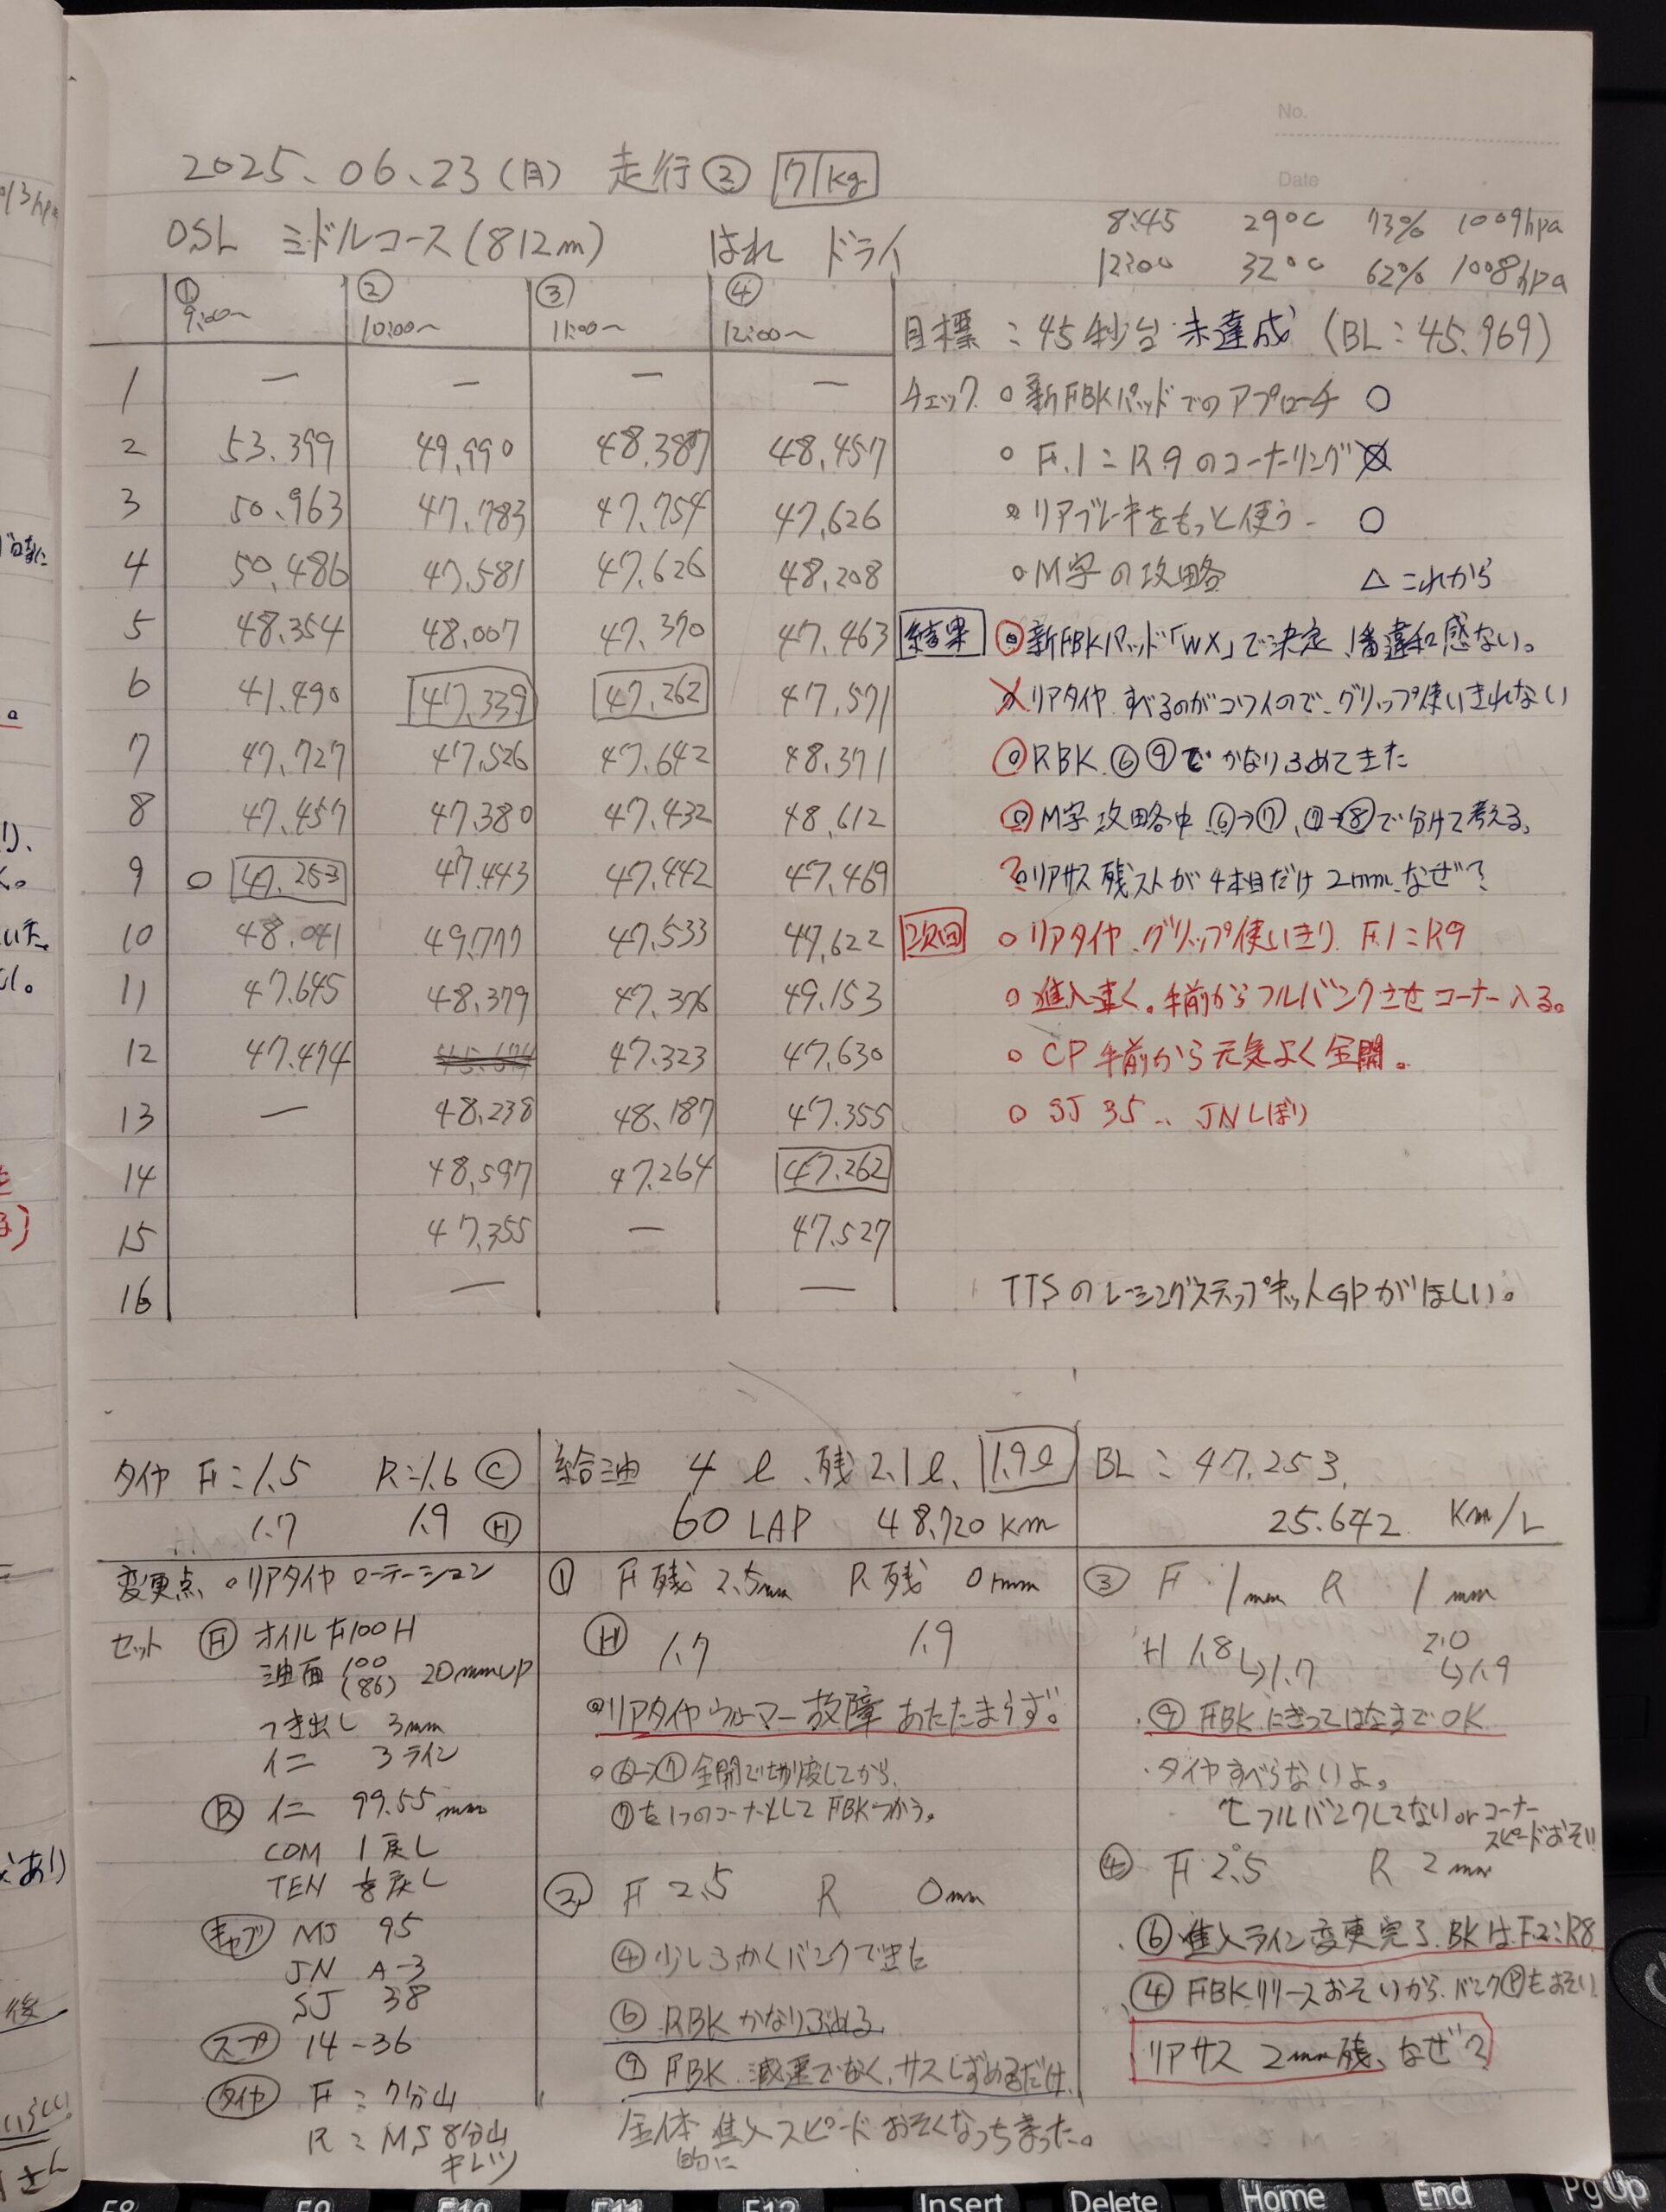 No.
Date
2025.06.23(月) 走行② 71kg
OSL ミドルコース(812m) はれ ドライ
8:45 29°C 73% 1009hpa
12:00 32°C 62% 1008hpa
① ② ③ ④
9:00~ 10:00~ 11:00~ 12:00~
1 — — — —
2 53.399 49.990 48.387 48.457
3 50.963 47.783 47.754 47.626
4 50.486 47.581 47.626 48.208
5 48.354 48.007 47.370 47.463
6 41.490 47.339 47.262 47.571
7 47.727 47.526 47.642 48.371
8 47.457 47.380 47.432 48.612
9 ○ 47.253 47.443 47.442 47.469
10 48.041 49.777 47.533 47.622
11 47.645 48.379 47.376 49.153
12 47.474 47.323 47.630
13 — 48.238 48.187 47.355
14 48.597 47.264 47.262
15 47.355 — 47.527
16 — —
目標:45秒台 未達成 (BL:45.969)
チェック ○新FBKパッドでのアプローチ ○
○F.1:R.9のコーナーリング ×
○リアブレーキをもっと使う ○
○M字の攻略 △これから
結果 ○新FBKパッド「WX」で決定、1番違和感ない。
×リアタイヤすべるのがコワイので、グリップ使いきれない
○RBK ⑥⑨でかなりふめてきた
○M字攻略中 ⑥→⑦、⑦→⑧で分けて考える。
?リアサス残ストが4本目だけ2mm、なぜ?
次回 ○リアタイヤ、グリップ使いきり F.1:R9
○進入速く。手前からフルバンクさせコーナー入る。
○CP手前から元気よく全開。
○SJ 35、、JNしぼり
TTSのレーシングステップキットGPがほしい。
タイヤ F:1.5 R:1.6 Ⓒ
1.7 1.9 Ⓗ
給油 4ℓ、残2.1ℓ、1.9ℓ
60 LAP 48.720 km
BL:47.253
25.642 Km/L
変更点 ○リアタイヤローテーション
セット Ⓕ オイルF100H
油面 100 (86) 20mmUP
つき出し 3mm
イニ 3ライン
Ⓡ イニ 99.55mm
COM 1戻し
TEN 戻し
キャブ MJ 95
JN A-3
SJ 38
スプ 14-36
タイヤ F:7分山
R:MS 8分山
キレツ
① F残 2.5mm R残 0mm
Ⓗ 1.7 1.9
○リアタイヤウォーマー故障 あたたまらず。
○⑥→⑦全開で切り返してから、
⑦を1つのコーナーとしてFBKつかう。
② F 2.5 R 0mm
④少しふかくバンクできた
⑥RBKかなりふめる
⑨FBK 減速でなく、サスしずめるだけ
全体的に進入スピードおそくなっちまった。
③ F 1mm R 1mm
H 1.8↳1.7 2.0↳1.9
・⑨FBKにぎってはなすでOK
・タイヤすべらないよ。
↳フルバンクしてない or コーナースピードおそい
④ F 2.5 R 2mm
・⑥進入ライン変更完了、BKはF2:R8
・④FBKリリースおそいから、バンクⓅもおそい
リアサス 2mm残、なぜ?
F8 F9 F10 F11 F12 Insert Delete Home End PgUp